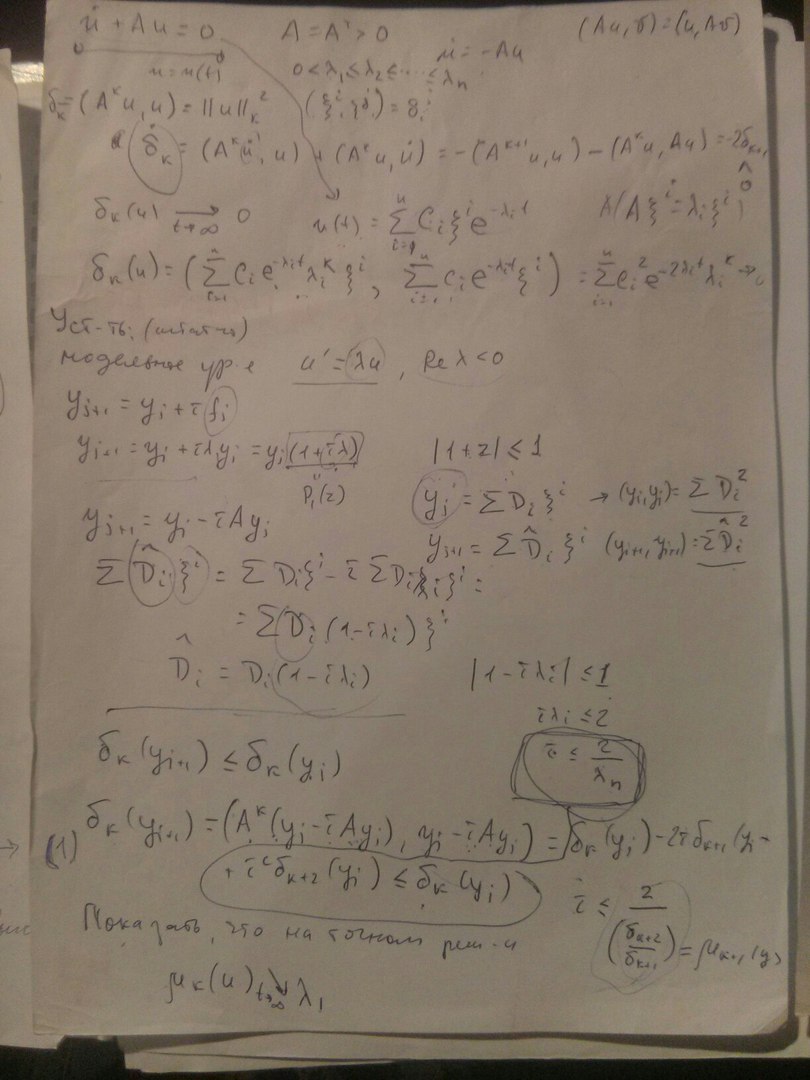 u̇ + Au = 0   A = A* > 0   (Au, v) = (u, Av)
u = u(t)   0 < λ₁ ≤ λ₂ ≤ ... ≤ λₙ   u̇ = -Au
δₖ = (Aᵏu, u) = ||u||ₖ²   (ξⁱ, ξʲ) = δᵢʲ
δ̇ₖ = (Aᵏu̇, u) + (Aᵏu, u̇) = -(Aᵏ⁺¹u, u) - (Aᵏu, Au) = -2δₖ₊₁
^
0
δₖ(u) → 0   u(t) = Σ Cᵢ ξⁱ e^{-λᵢt}   Aξⁱ = λᵢξⁱ
t→∞
δₖ(u) = (Σ Cᵢ e^{-λᵢt} λᵢᵏ ξⁱ, Σ Cᵢ e^{-λᵢt} ξⁱ) = Σ Cᵢ² e^{-2λᵢt} λᵢᵏ → 0
Уст-ть:
модельное ур-е   u' = λu, Re λ < 0
yⱼ₊₁ = yⱼ + τfⱼ
yⱼ₊₁ = yⱼ + τλyⱼ = yⱼ(1+τλ)   |1+z| ≤ 1
P₁(z)   yⱼ = Σ Dᵢ ξⁱ → (yⱼ, yⱼ) = Σ Dᵢ²
yⱼ₊₁ = yⱼ - τAyⱼ   yⱼ₊₁ = Σ D̂ᵢ ξⁱ   (yⱼ₊₁, yⱼ₊₁) = Σ D̂ᵢ²
Σ D̂ᵢ ξⁱ = Σ Dᵢξⁱ - τ Σ Dᵢλᵢξⁱ =
= Σ Dᵢ(1-τλᵢ) ξⁱ
D̂ᵢ = Dᵢ(1-τλᵢ)   |1-τλᵢ| ≤ 1
τλᵢ ≤ 2
τ ≤ 2/λₙ
δₖ(yⱼ₊₁) ≤ δₖ(yⱼ)
(1) δₖ(yⱼ₊₁) = (Aᵏ(yⱼ - τAyⱼ), yⱼ - τAyⱼ) = δₖ(yⱼ) - 2τδₖ₊₁(yⱼ -
+ τ²δₖ₊₂(yⱼ) ≤ δₖ(yⱼ)   τ ≤ 2/(δₖ₊₂/δₖ₊₁) = μₖ₊₁(y)
Показать, что на точном реш-и
μₖ(u) ↘ λ₁
t→∞